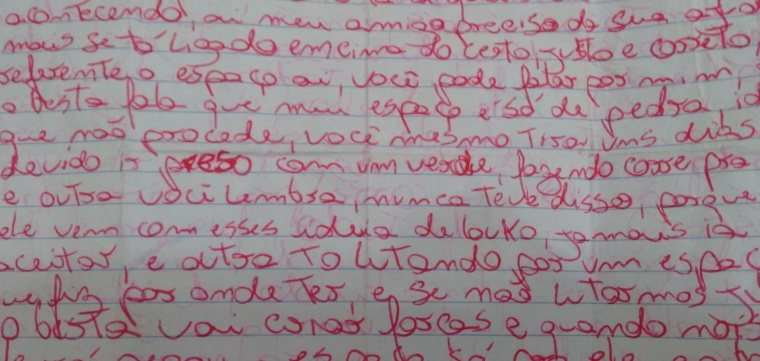 acontecendo, ai meu amigo preciso da sua
mais se tó ligado emcima do certo, justo e correto,
referente o espaço ai, você pode falar por mim,
o besta fala que meu espaço é só de pedra,
que não procede, você mesmo tirou uns dias
devido ir preso com um verde, fazendo corre pra
e outra você lembra, nunca teve disso, porque
ele vem com esses ideia de louko, jamais ia
aceitar, e outra to lutando por um espaç
que fiz por onde ter, e se não lutarmos
o besta vai criar forcas e quando